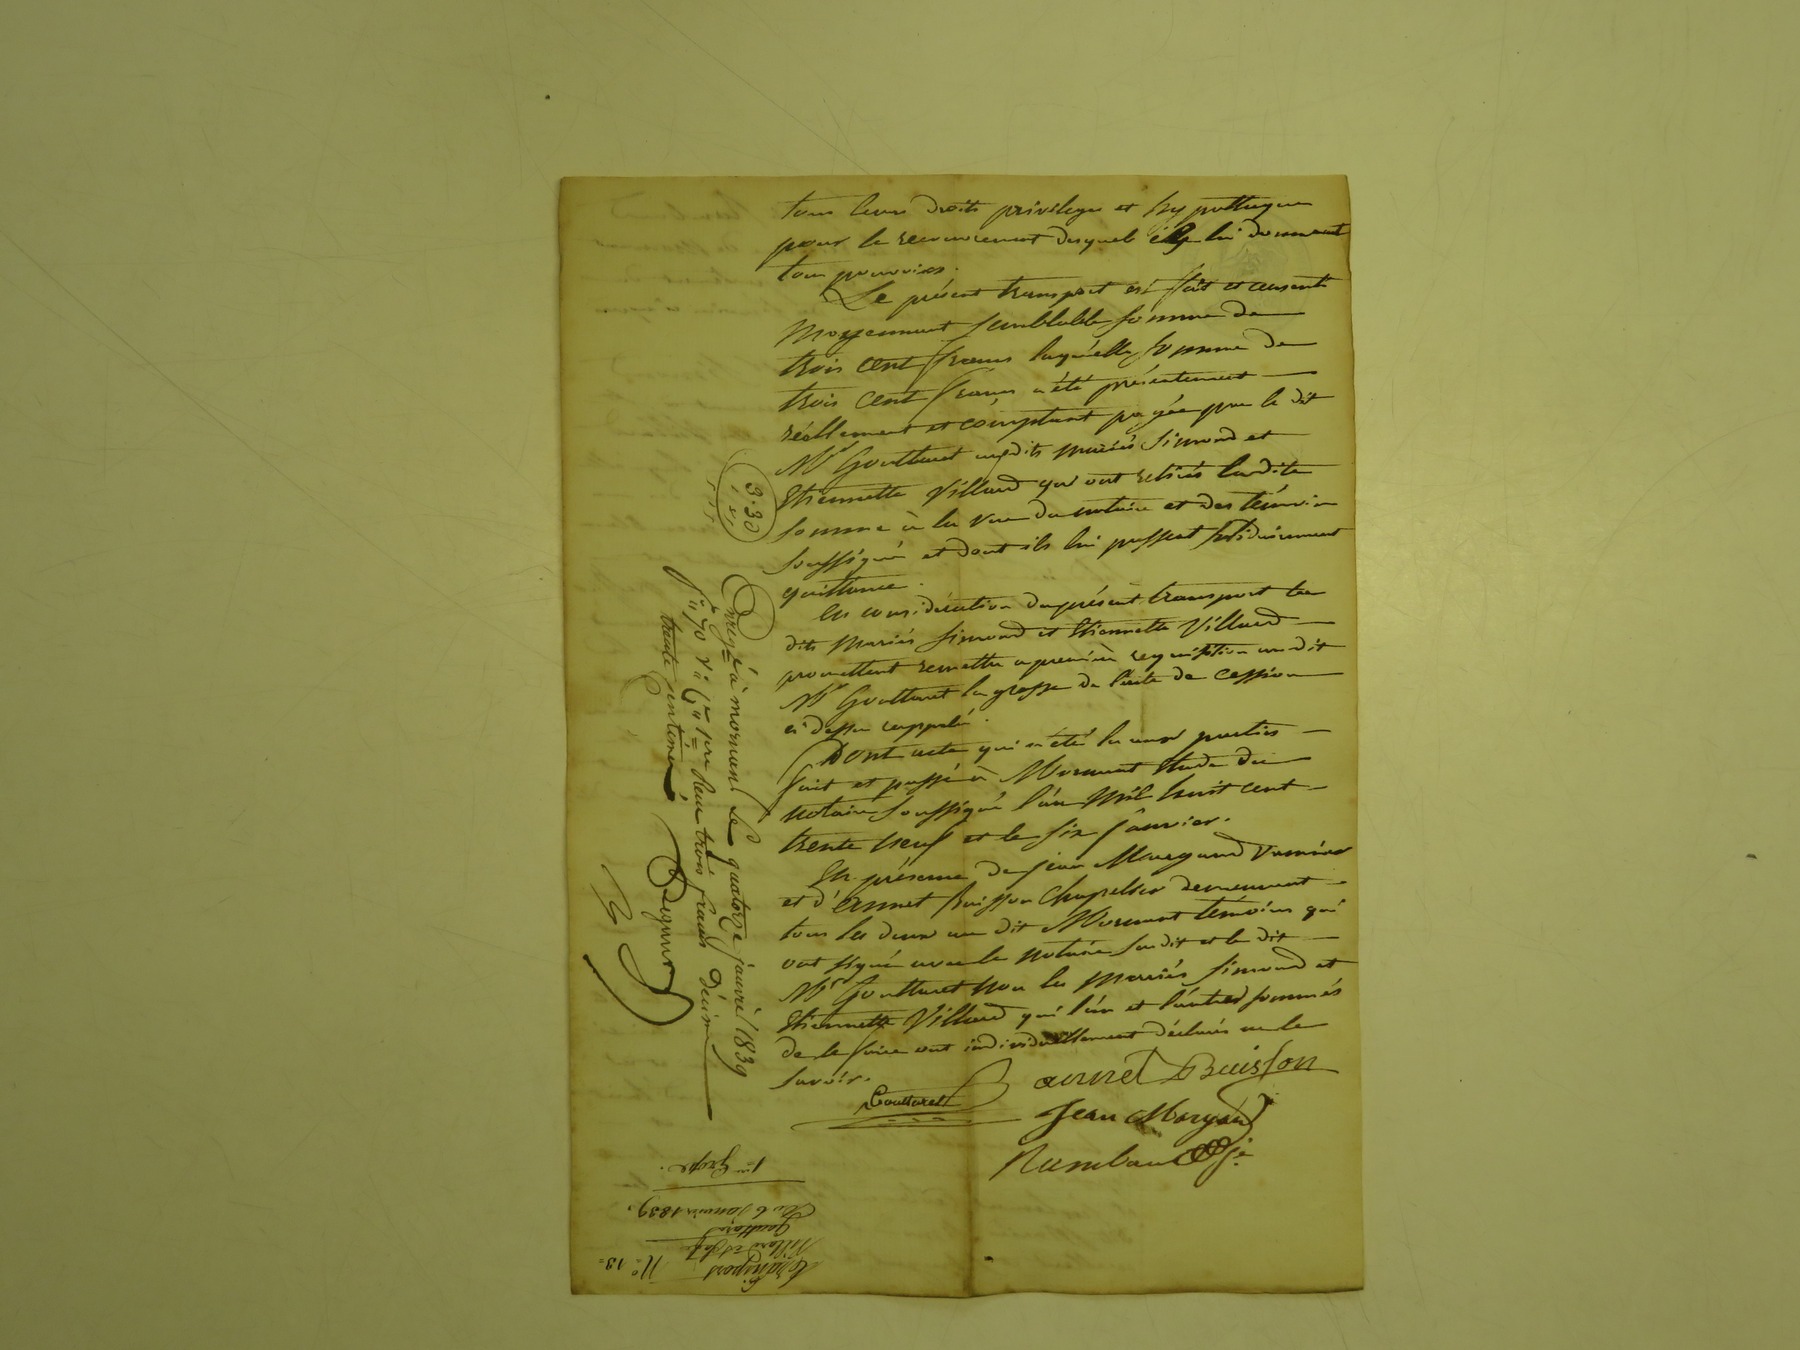 tous leurs droits privileges et hypotheques
pour le recouvrement desquels ils lui donnent
tous pouvoirs.
Le présent transport est fait et consenti
moyennant semblable somme de
trois cent francs laquelle somme de
trois cent francs a été présentement
réellement et comptant payée par le dit
Mr Goutteret auxdits mariés Simond et
Etiennette Villard qui ont retirés ladite
somme à la vue du notaire et des témoins
soussignés et dont ils lui passent solidairement
quittance.
En considération du présent transport les
dits mariés Simond et Etiennette Villard
promettent remettre a première requisition au dit
Mr Goutteret la grosse de l'acte de cession
ci dessus rappelé.
Dont acte qui a été lu aux parties
fait et passé à Mornant étude du
notaire soussigné l'an mil huit cent
trente neuf et le six janvier.
En présence de Jean Margand
et d'Annet Buisson chapelier demeurant
tous les deux au dit Mornant témoins qui
ont signé avec le notaire susdit et le dit
Mr Goutteret non les mariés Simond et
Etiennette Villard qui l'un et l'autre sommés
de le faire ont individuellement déclarés ne le
savoir.
annet Buisson
Goutteret
Jean Margand
3.30
Enregé à mornant le quatorze janvier 1839
fo 70 vo Co 1 pre Reçu trois francs décime
trente centimes
Transport
Villard et
Goutteret
Du 6 Janvier 1839.
1ere Grosse.
No 13